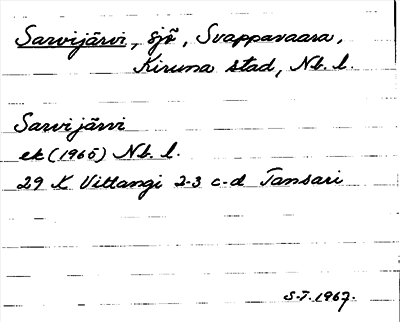 Sarvijärvi, sjö, Svappavaara,
Kiruna stad, Nb. l.
Sarvijärvi
ek (1965) Nb. l.
29 K Vittangi 2-3 c-d Tansari
S-T. 1967.